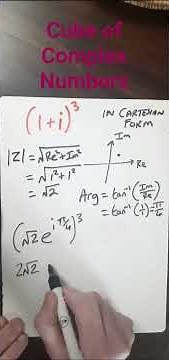 Cube of
Complex
Numbers
(1+i)³
IN CARTESIAN
FORM
Im
Re
|Z| = √Re²+Im²
= √1²+1²
= √2
Arg = tan⁻¹(Im/Re)
= tan⁻¹(1/1) = π/4
(√2 e^{iπ/4})³
2√2